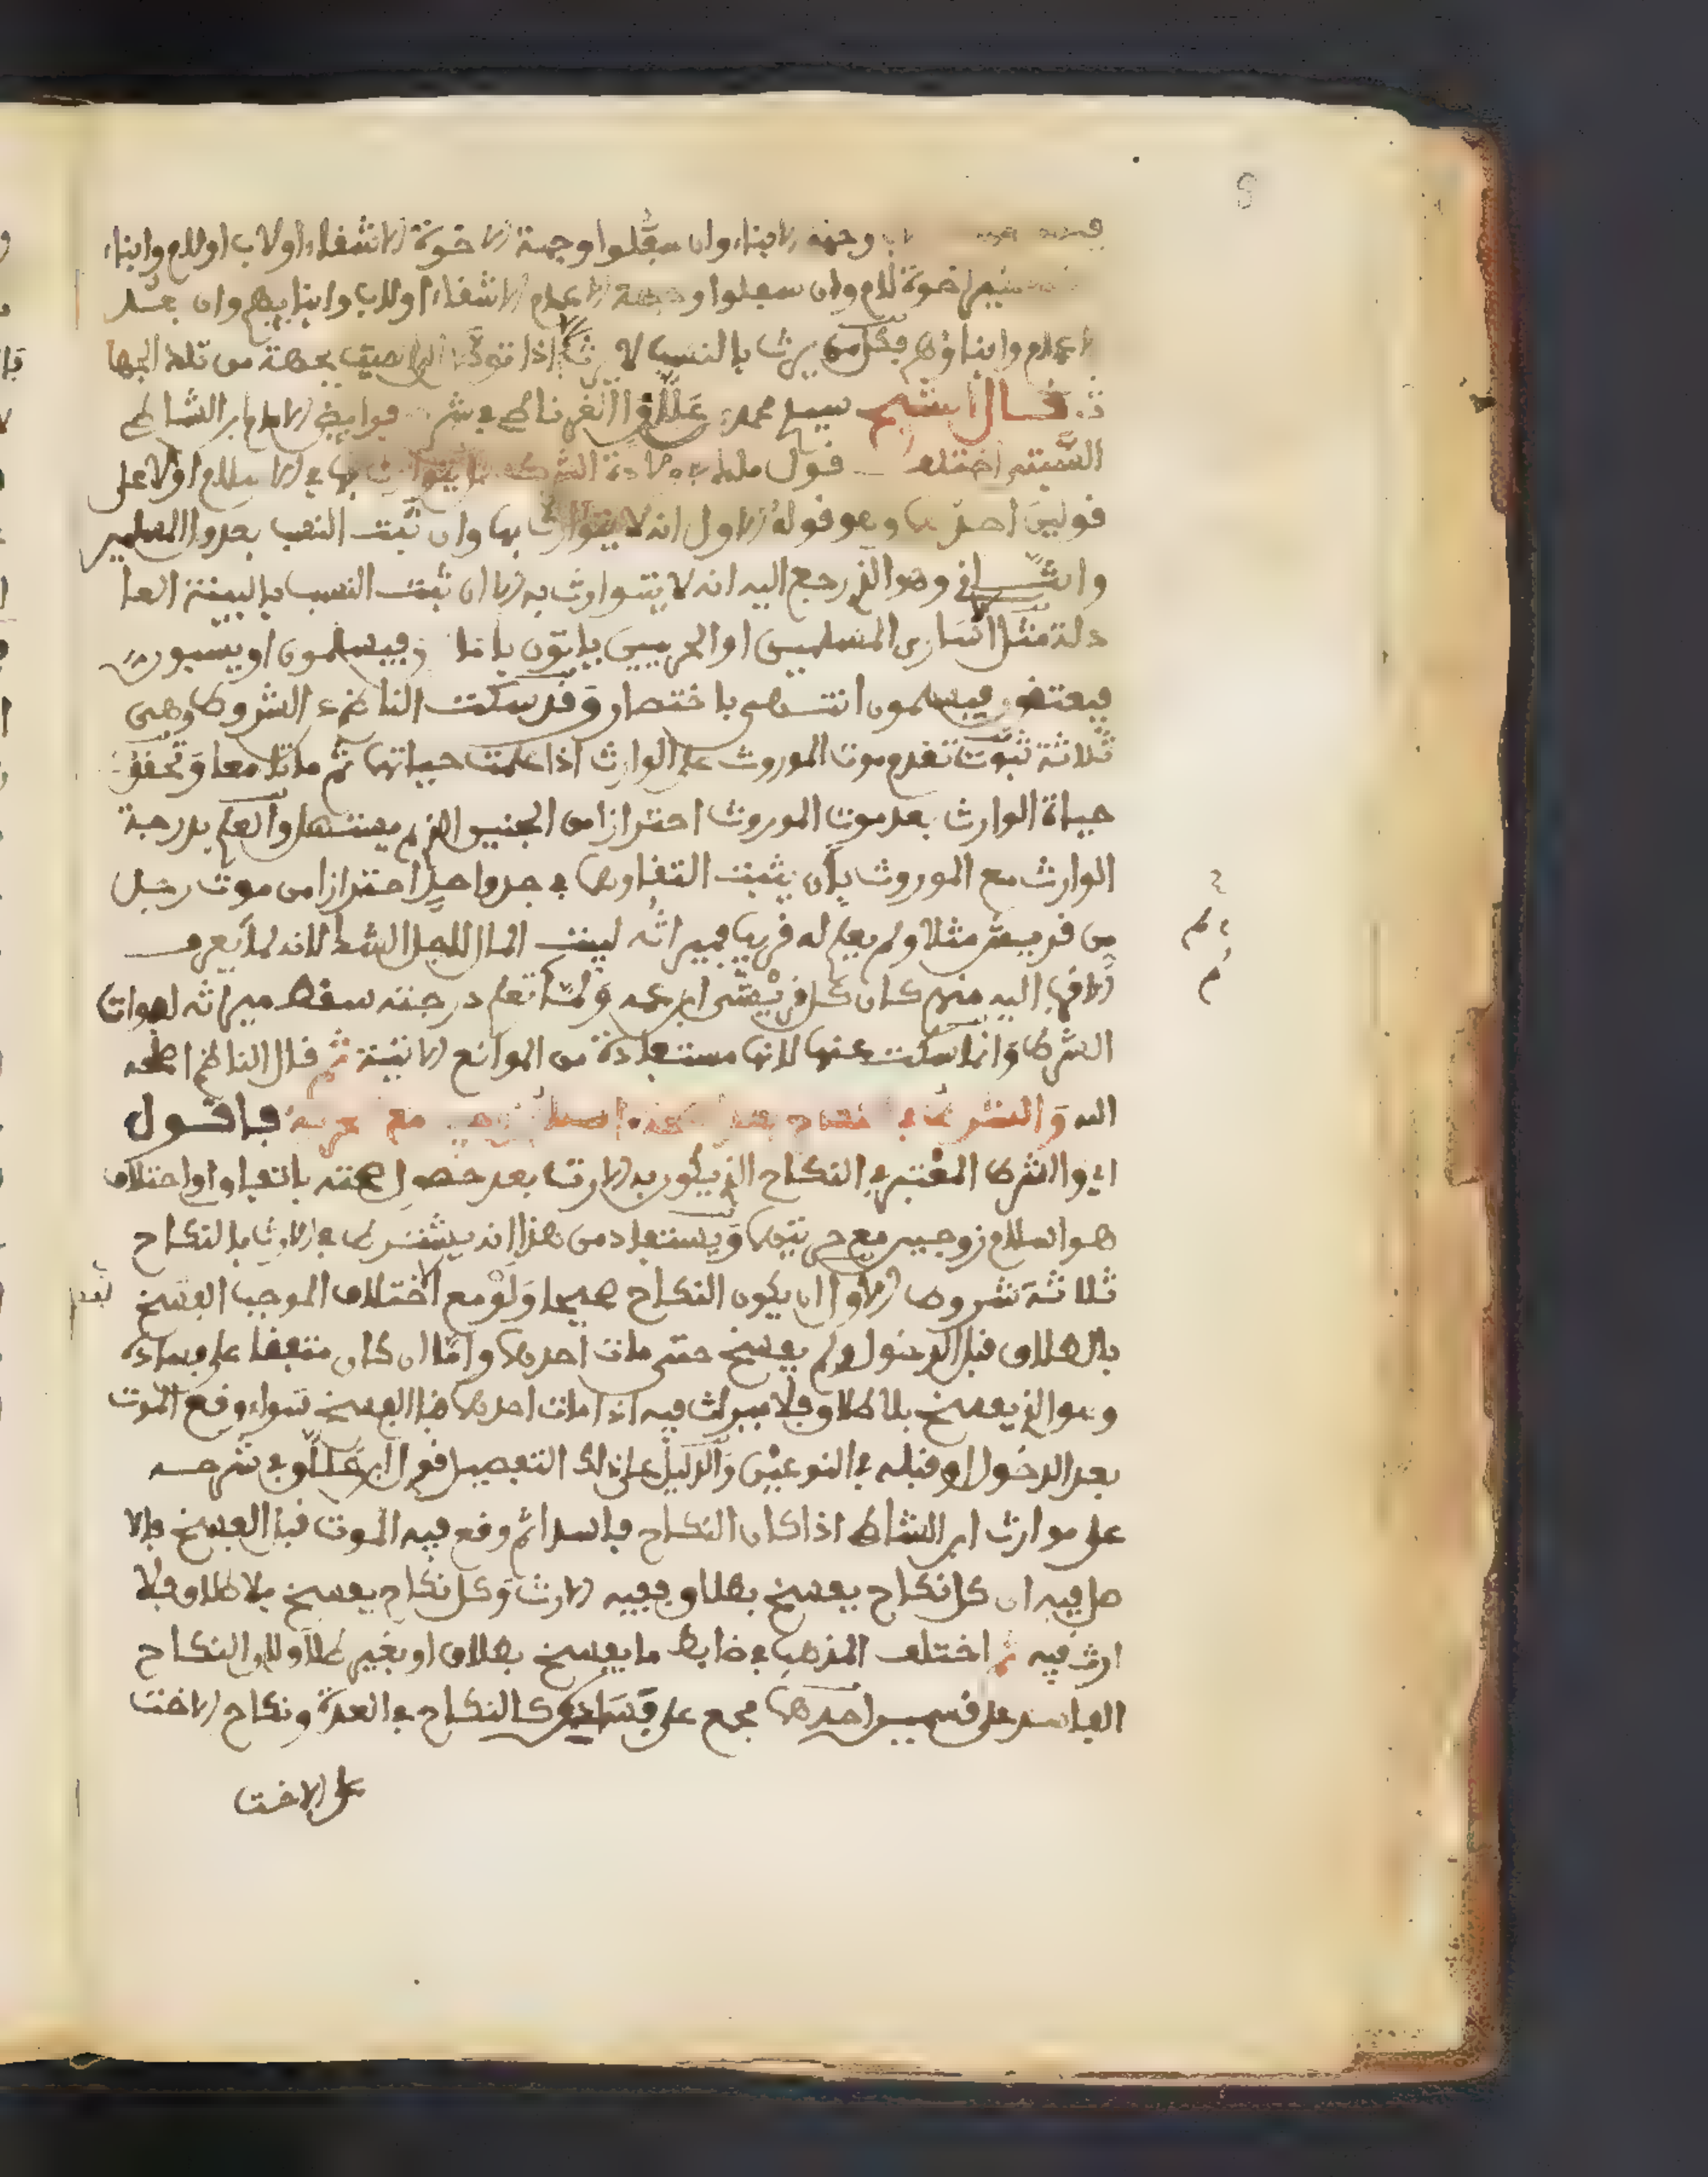 8
وجهة الابناء وان سفلوا وجهة الاخوة الاشقاء او لاب او للام وابناء
اخوة للام وان سفلوا وجهة الاعمام الاشقاء او للاب وابنايهم وان بعد
الاعمام وابناؤهم فكل من يرث بالنسب لا يرث اذا بجهة من تلك الجها
ت قال الشيخ سيد محمد علاق الغرناطي في شرح فرايض الامام ابن الشاط
السبتي اختلف قول ملك في ولادة الشرك هل يتوارث بها في الاسلام او لا على
قولين احدهما وهو قوله الاول انه لا يتوارث بها وان ثبت النسب بعدول المسلمين
والثاني وهو الذي رجع اليه انه لا يتوارث به الا ان ثبت النسب بالبينة العا
دلة مثل اسارى المسلمين او الحربيين ياتون بامان فيسلمون او يسبون
فيعتقون فيسلمون انتهى باختصار وقد سكت الناظم عن الشروط وهي
ثلاثة ثبوت تقدم موت الموروث على الوارث اذا علمت حياتهما ثم ماتا معا وتحقق
حياة الوارث بعد موت الموروث احترازا من الجنين الذي لم يستهل والعلم بدرجة
الوارث مع الموروث بان يثبت التقاوهما في جد واحد احترازا من موت رجل
من قريش مثلا ولم يعلم له قريب فميراثه لبيت المال للجهل الشك لانه لما يعرف
الاقرب اليه منهم كان كل قريشي ابن عمه ولما لم تعلم درجته سقط ميراثه لفوات
الشرط وانما سكت عنها لانها مستفادة من الموانع الاتية ثم قال الناظم اصلحه
الله والشرط في مع حرية فاقول
اي والشرط المعتبر في النكاح الذي يكون به الارث بعد حصول صحته باتفاق او اختلاف
هو اسلام زوجين مع حريتهما ويستفاد من هذا انه يشترط في الارث بالنكاح
ثلاثة شروط الاول ان يكون النكاح صحيحا ولو مع اختلاف الموجب الفسخ
بالطلاق قبل الدخول ولم يفسخ حتى مات احدهما واما ان كان متفقا على فساده
وهو الذي يفسخ بلا طلاق فلا ميراث فيه اذا مات احدهما قبل الفسخ سواء وقع الموت
بعد الدخول او قبله في النوعين والدليل على ذلك التفصيل قول ابن علاق في شرحه
على موارث ابن الشاط اذا كان النكاح فاسدا ثم وقع فيه الموت قبل الفسخ فالا
صل فيه ان كل نكاح يفسخ بطلاق ففيه الارث وكل نكاح يفسخ بلا طلاق فلا
ارث فيه ثم اختلف المذهب في ضابط ما يفسخ بطلاق او بغير طلاق والنكاح
الفاسد على قسمين احدهما مجمع على فساده كالنكاح في العدة ونكاح الاخت
على الاخت